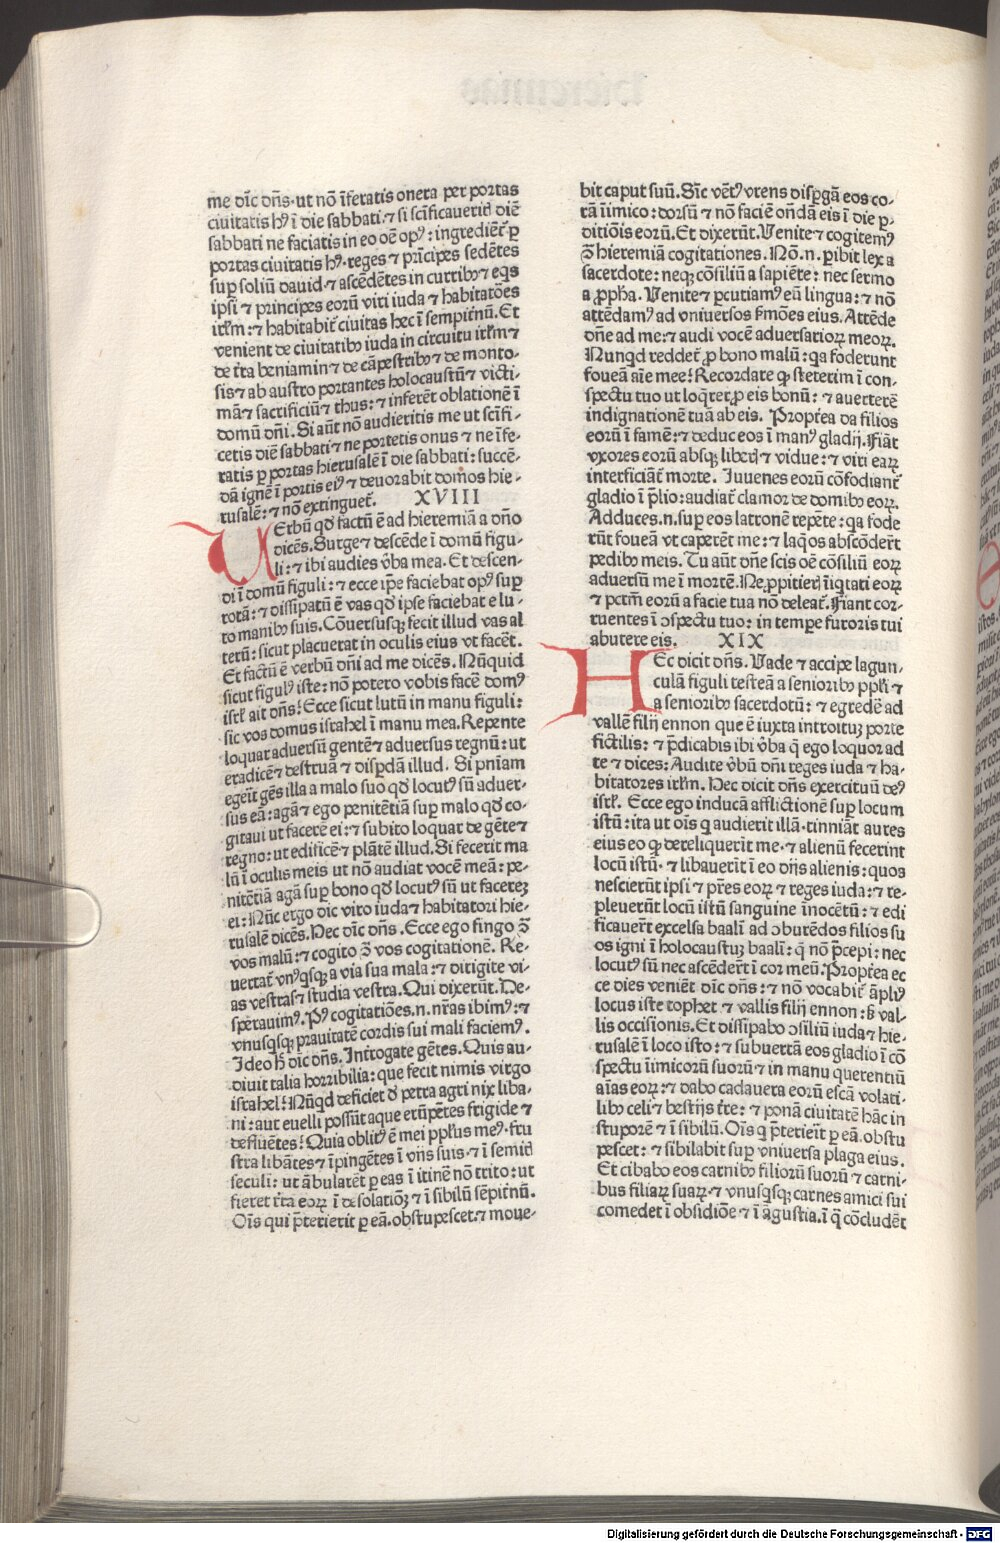 me dic̄ dn̄s. ut nō īferatis onera per portas
ciuitatis hꝰ ī die sabbati. ⁊ si sc̄ificaueritꝭ diē
sabbati ne faciatis in eo oē opꝰ: ingrediēt̄ ꝑ
portas ciuitatis hꝰ. reges ⁊ prīcipes sedētes
suꝑ soliū dauid. ⁊ ascēdētes in currib⁹ ⁊ eqs
ipsi ⁊ principes eorū viri iuda ⁊ habitatōes
irl̄m: ⁊ habitabit̄ ciuitas hec ī sempit̄nū. Et
venient de ciuitatib⁹ iuda in circuitu irl̄m ⁊
de t̄ra beniamin ⁊ de cāpestrib⁹ ⁊ de monto-
sis ⁊ ab austro portantes holocaustū ⁊ victi-
mā ⁊ sacrificiū ⁊ thus: ⁊ inferēt oblationē ī
domū dn̄i. Si aūt nō audieritis me ut sc̄ifi-
cetis diē sabbati ⁊ ne portetis onus ⁊ ne īfe-
ratis ꝑ portas hierusalē ī die sabbati: succē-
dā ignē ī portis eiꝰ ⁊ deuorabit domos hie-
rusalē: ⁊ nō extinguet̄. XVIII
UErbū qd̄ factū ē ad hieremiā a dn̄o
dicēs. Surge ⁊ descēde ī domū figu-
li: ⁊ ibi audies v̄ba mea. Et descen-
di ī domū figuli: ⁊ ecce ip̄e faciebat opꝰ suꝑ
rotā: ⁊ dissipatū ē vas qd̄ ipse faciebat e lu-
to manib⁹ suis. Cōuersusqꝫ fecit illud vas al
terū: sicut placuerat in oculis eius vt facēt.
Et factū ē verbū dn̄i ad me dicēs. Nūquid
sicut figulꝰ iste: nō potero vobis facē domꝰ
isrl̄ ait dn̄s? Ecce sicut lutū in manu figuli:
sic vos domus israhel ī manu mea. Repente
loquar aduersū gentē ⁊ aduersus regnū: ut
eradicē ⁊ destruā ⁊ disp̄dā illud. Si pn̄iam
egeīt gēs illa a malo suo qd̄ locutꝰ sū aduer-
sus eā: agā ⁊ ego penitētiā suꝑ malo qd̄ co-
gitaui ut facerē ei: ⁊ subito loquar de gēte ⁊
regno: ut edificē ⁊ plātē illud. Si fecerit ma
lū ī oculis meis ut nō audiat vocē meā: pe-
nitētiā agā suꝑ bono qd̄ locutꝰ sū ut facereꝫ
ei: Nūc ergo dic viro iuda ⁊ habitatori hie-
rusalē dicēs. Hec dic̄ dn̄s. Ecce ego fingo ꝯ̄
vos malū: ⁊ cogito ꝯ̄ vos cogitationē. Re-
uertat̄ vnꝰqsqꝫ a via sua mala: ⁊ dirigite vi-
as vestras ⁊ studia vestra. Qui dixerūt. De-
sperauimꝰ. Pꝰ cogitatiōes. n. nr̄as ibimꝰ: ⁊
vnusqsqꝫ prauitatē cordis sui mali faciemꝰ.
Ideo h̄ dic̄ dn̄s. Int̄rogate gētes. Quis au-
diuit talia horribilia: que fecit nimis virgo
israhel? Nūqd deficiet d̄ petra agri nix liba-
ni: aut euelli possūt aque erūpētes frigide ⁊
defluētes? Quia oblitꝰ ē mei pplūs meꝰ. fru
stra libātes ⁊ īpingētes ī vijs suis. ⁊ ī semitꝭ
seculi: ut ābularēt ꝑ eas ī itinē nō trito: ut
fieret t̄ra eoꝝ ī desolatiōꝫ ⁊ ī sibilū sēpit̄nū.
Oīs qui p̄terierit ꝑ eā. obstupescet. ⁊ moue-
bit caput suū. Sīc vētꝰ vrens disꝑgā eos co-
rā īimico: dorsū ⁊ nō faciē ondā eis ī die ꝑ-
ditiōis eorū. Et dixerūt. Venite ⁊ cogitemꝰ
ꝯ̄ hieremiā cogitationes. Nō. n. ꝑibit lex a
sacerdote: neqꝫ cōsiliū a sapiēte: nec sermo
a ꝓpħa. Venite ⁊ ꝑcutiamꝰ eū lingua: ⁊ nō
attēdamꝰ ad vniuersos s̄mōes eius. Attēde
dn̄e ad me: ⁊ audi vocē aduersarioꝝ meoꝝ.
Nunqd reddet̄ ꝓ bono malū: qa foderunt
foueā aīe mee? Recordare ꝙ steterim ī con-
spectu tuo ut loq̄rer ꝓ eis bonū: ⁊ auerterē
indignationē tuā ab eis. Propt̄ea da filios
eorū ī famē: ⁊ deduc eos ī manꝰ gladij. Fiāt
vxores eorū absqꝫ liberꝭ ⁊ vidue: ⁊ viri eaꝝ
interficiāt̄ morte. Juuenes eorū cōfodiant̄
gladio ī p̄lio: audiat̄ clamor de domib⁹ eoꝝ.
Adduces. n. suꝑ eos latronē repēte: qa fode
rūt foueā vt caperēt me: ⁊ laq̄os abscōder̄t
pedib⁹ meis. Tu aūt dn̄e scis oē cōsiliū eoꝝ
aduersū me ī mortē. Ne ꝓpitierꝭ īiqtati eoꝝ
⁊ pctm̄ eorū a facie tua nō deleat̄. Fiant cor-
ruentes ī ꝯspectu tuo: in tempe furoris tui
abutere eis. XIX
HEc dicit dn̄s. Vade ⁊ accipe lagun-
culā figuli testeā a seniorib⁹ ppl̄i ⁊
a seniorib⁹ sacerdotū: ⁊ egredē ad
vallē filij ennon que ē iuxta introitū porte
fictilis: ⁊ p̄dicabis ibi v̄ba q̄ ego loquor ad
te ⁊ dices: Audite v̄bū dn̄i reges iuda ⁊ ha-
bitatores irl̄m. Hec dicit dn̄s exercituū deꝰ
isrl̄. Ecce ego inducā afflictionē suꝑ locum
istū: ita ut oīs q audierit illā. tinniāt aures
eius eo ꝙ dereliquerīt me. ⁊ alienū fecerint
locū istū. ⁊ libauerīt ī eo dijs alienis: quos
nescierūt ipsi ⁊ pr̄es eoꝝ ⁊ reges iuda: ⁊ re-
pleuerūt locū istū sanguine īnocētū: ⁊ edi
ficauer̄t excelsa baalī ad ꝯburēdos filios su
os igni ī holocaustuꝫ baalī: q̄ nō p̄cepi: nec
locutꝰ sū nec ascēder̄t ī cor meū. Propt̄ea ec
ce dies veniēt dic̄ dn̄s: ⁊ nō vocabit̄ āpliꝰ
locus iste tophet ⁊ vallis filij ennon: s̄ val-
lis occisionis. Et dissipabo ꝯsiliū iuda ⁊ hie-
rusalē ī loco isto: ⁊ subuertā eos gladio ī cō
spectu īimicorū suorū ⁊ in manu querentiū
aīas eoꝝ: ⁊ dabo cadauera eorū escā volati-
lib⁹ celi ⁊ bestijs t̄re: ⁊ ponā ciuitatē hāc in
stuporē ⁊ ī sibilū. Oīs q p̄terierīt ꝑ eā. obstu
pescet: ⁊ sibilabit suꝑ vniuersa plaga eius.
Et cibabo eos carnib⁹ filiorū suorū ⁊ carni-
bus filiaꝝ suaꝝ. ⁊ vnusqsqꝫ carnes amici sui
comedet ī obsidiōe ⁊ ī āgustia. ī q̄ cōcludēt
Digitalisierung gefördert durch die Deutsche Forschungsgemeinschaft - DFG